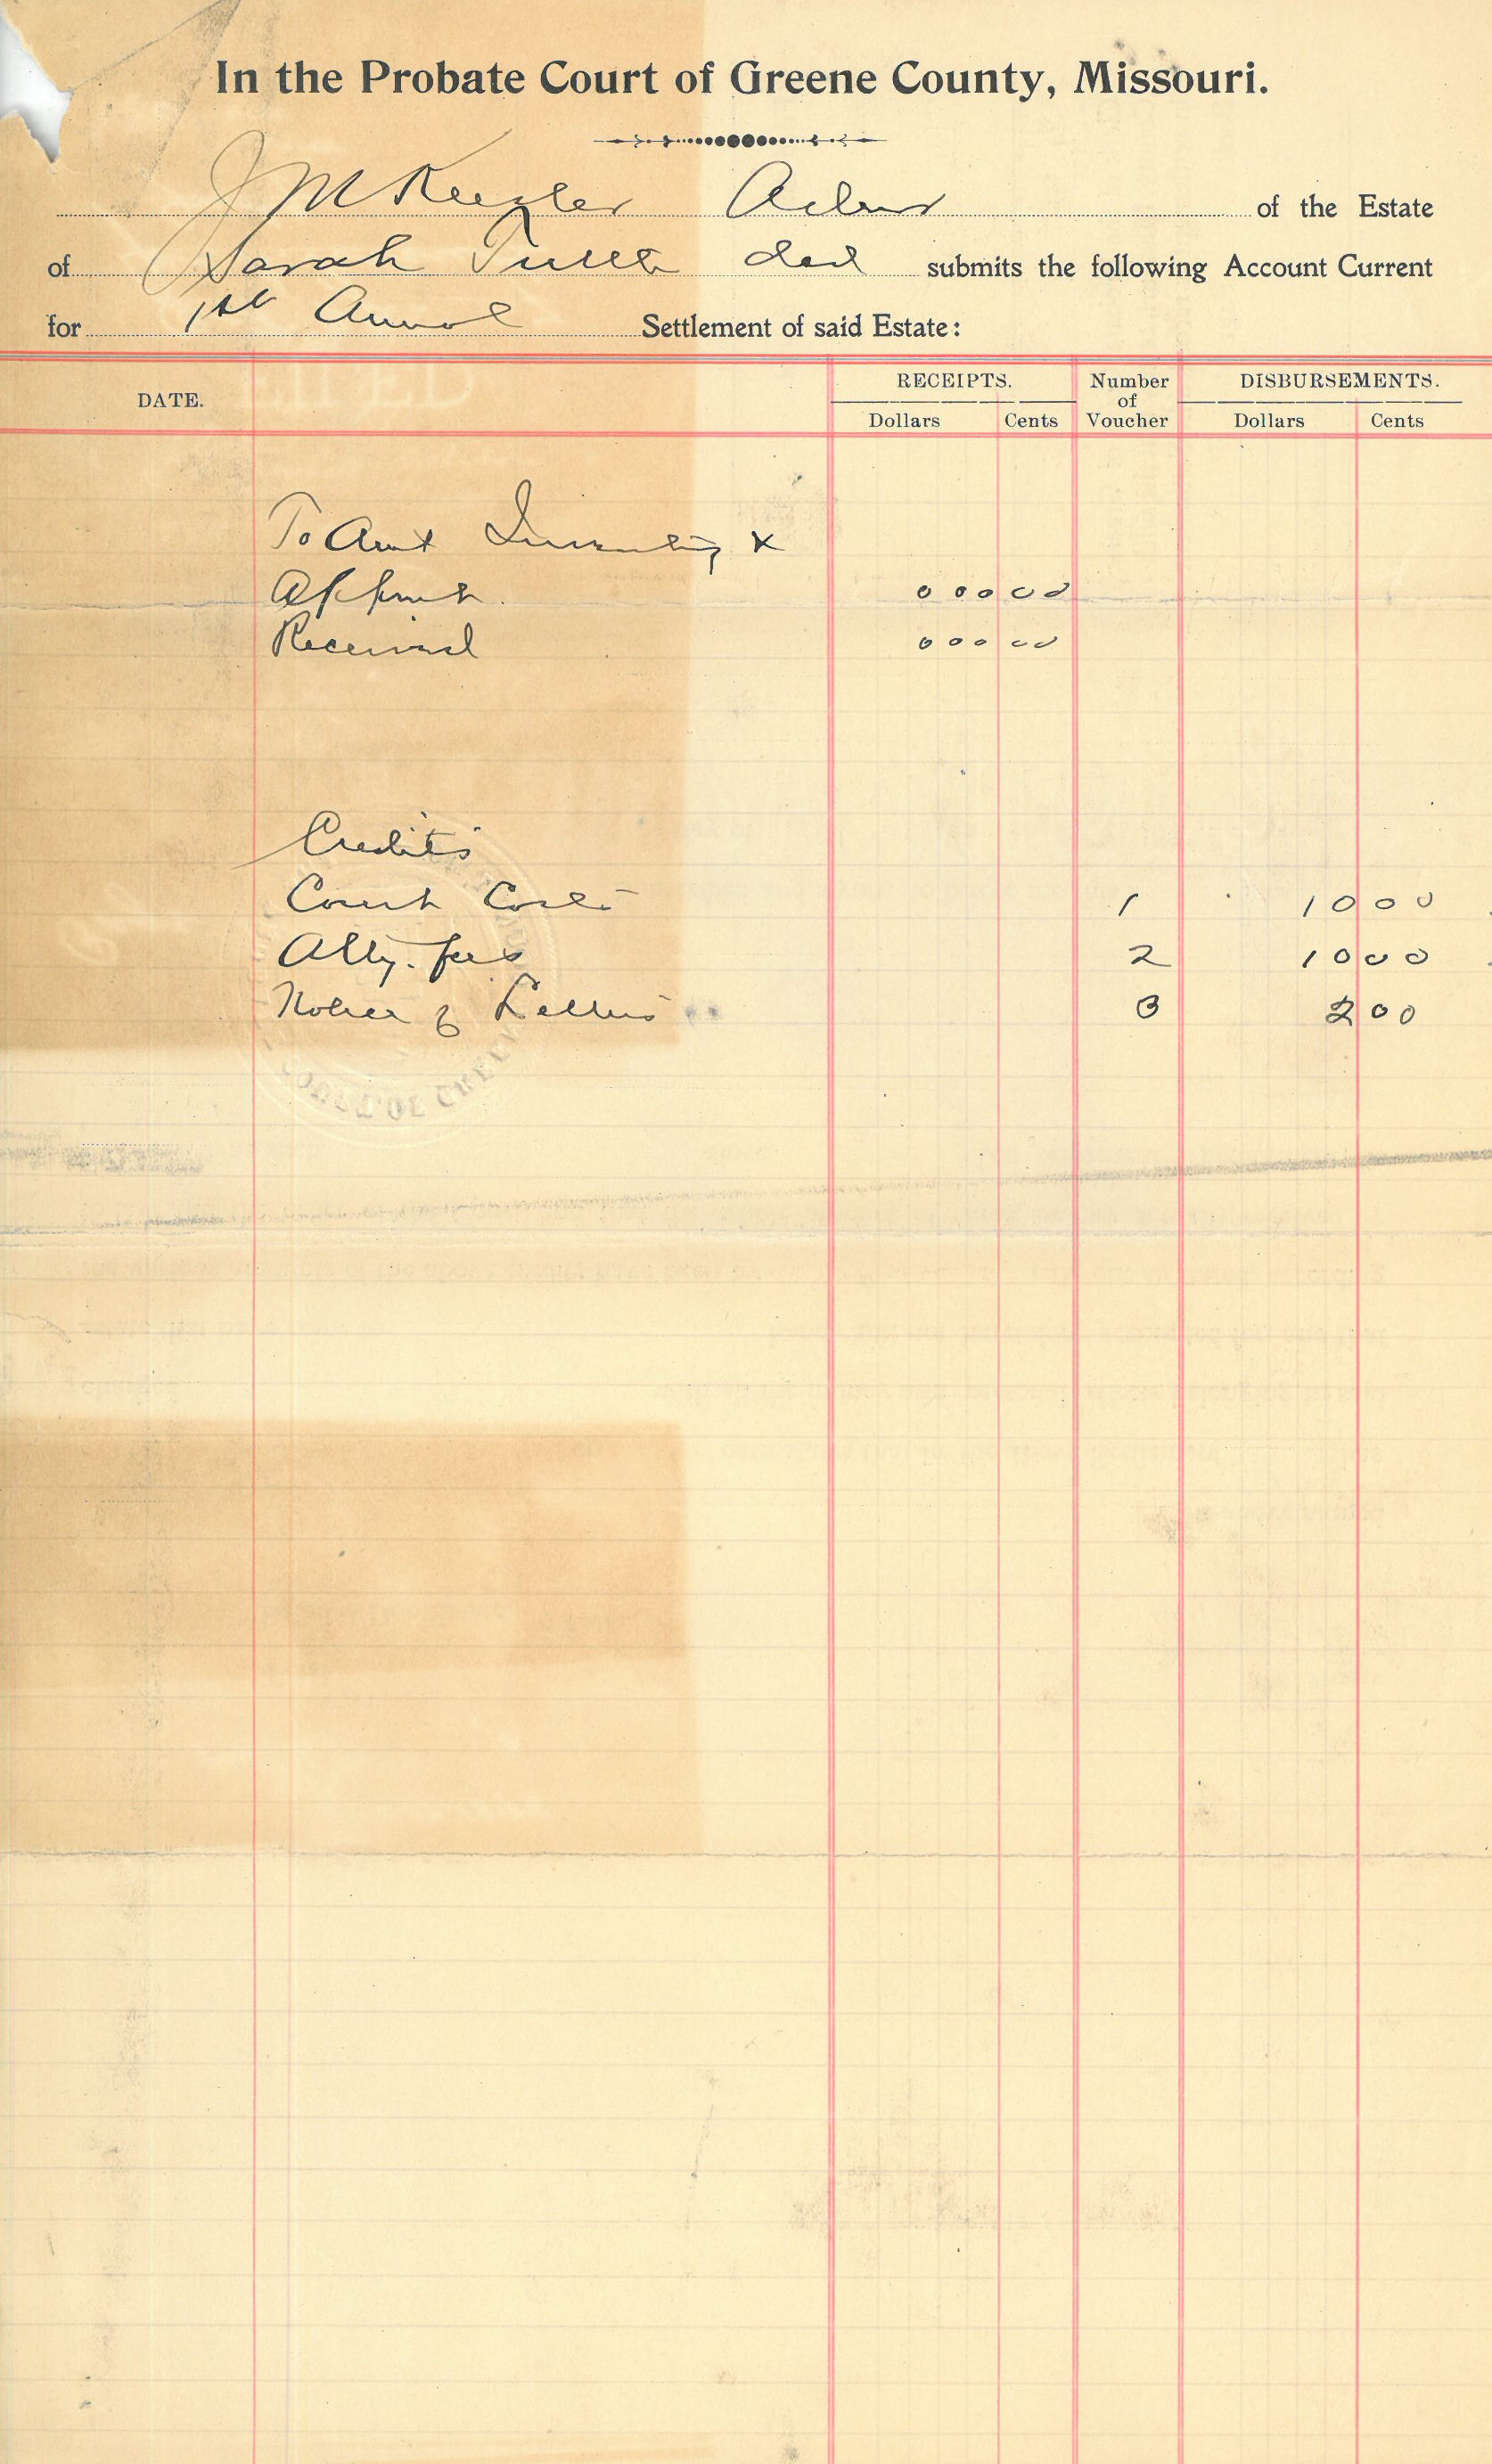 In the Probate Court of Greene County, Missouri.
J M Keezler Admr of the Estate
of Sarah Tulla decd submits the following Account Current
for 1st Annual Settlement of said Estate:
DATE. RECEIPTS. Number of Voucher DISBURSEMENTS.
Dollars Cents Dollars Cents
To Amt Inventory x
Apprmt 0 00 00
Received 0 00 00
Credits
Court Costs 1 10 00
Atty. fees 2 10 00
Notice of Letters 3 2 00